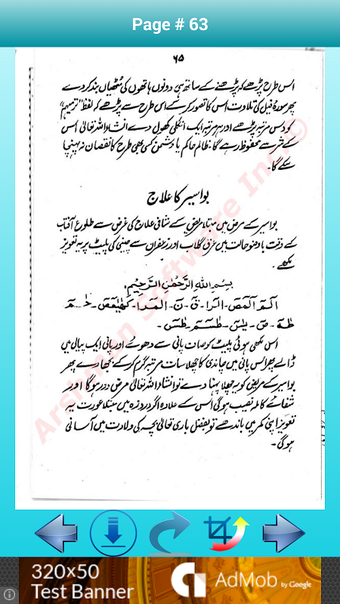 Page # 63
۶۵
اس طرح پڑھے کہ پڑھنے کے ساتھ ہی دونوں ہاتھوں کی مٹھیاں بند کر دے
پھر سورہ فیل کی تلاوت اس کا تصور کر کے اس طرح سے پڑھے کہ لفظ "ترمیہم"
کو دس مرتبہ پڑھے اور ہر مرتبہ ایک انگلی کھول دے انشاء اللہ تعالیٰ اس
کے شر سے محفوظ رہے گا۔ ظالم حاکم یا دشمن کسی بھی طرح کا نقصان نہ پہنچا
سکے گا۔
بواسیر کا علاج
بواسیر کے مرض میں مبتلا مریض کے شافی علاج کی غرض سے طلوع آفتاب
کے وقت باوضو حالت میں عرق گلاب اور زعفران سے چینی کی پلیٹ پر یہ تعویز
لکھے۔
بسم اللہ الرّحمٰن الرّحیم،
الٓمٓ الٓمٓصٓ۔ الٓرا۔ قٓ۔ نٓ۔ الٓمٓدا۔ کٓھٰیٰعٓصٓ۔ حٰمٓ
طٰہٰ۔ صٓ۔ یٰسٓ۔ طٰسٓمٓ۔ طٰسٓ۔
اس لکھی ہوئی پلیٹ کو صاف پانی سے دھوئے اور پانی ایک پیالی میں
ڈالے پھر اس پانی میں چاندی کا چھلا سات مرتبہ گرم کر کے بجھا رہے پھر
بواسیر کے مریض کو یہ چھلا پہنا دے تو انشاء اللہ تعالیٰ مرض دور ہو گا اور
شفائے کاملہ نصیب ہو گی اس کے علاوہ اگر درد زہ میں مبتلا عورت یہ
تعویز اپنی کمر میں باندھے تو بفضل باری تعالیٰ بچہ کی ولادت میں آسانی
ہو گی۔
Arshlan Software Inc.©
320x50
Test Banner
AdMob by Google